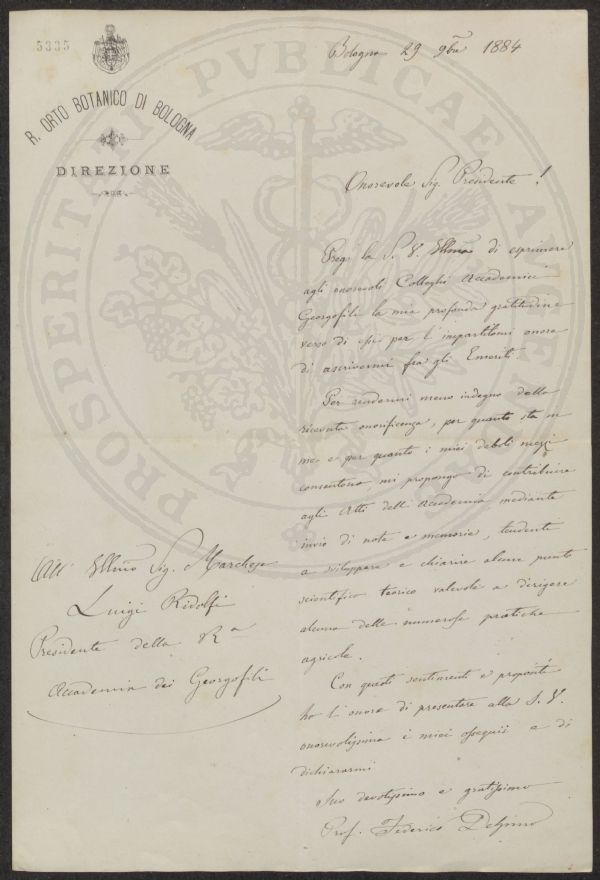 5335
R. ORTO BOTANICO DI BOLOGNA
DIREZIONE
PROSPERITATI PUBLICAE AUGENDAE
Bologna 29 9bre 1884
Onorevole Sig. Presidente!
Prego la S. V. Illma di esprimere
agli onorevoli Colleghi Accademici
Georgofili la mia profonda gratitudine
verso di essi per l'impartitomi onore
di ascrivermi fra gli Emeriti.
Per rendermi meno indegno della
ricevuta onorificenza, per quanto sta in
me e per quanto i miei deboli mezzi
consentono mi propongo di contribuire
agli Atti dell'Accademia mediante
invio di note e memorie, tendente
a sviluppare e chiarire alcun punto
scientifico teorico valevole a dirigere
alcuna delle numerose pratiche
agricole.
Con questi sentimenti e propositi
ho l'onore di presentare alla S. V.
onorevolissima i miei ossequii e di
dichiararmi
Suo devotissimo e gratissimo
Prof. Federico Delpino
All' Illmo Sig. Marchese
Luigi Ridolfi
Presidente della Ra
Accademia dei Georgofili